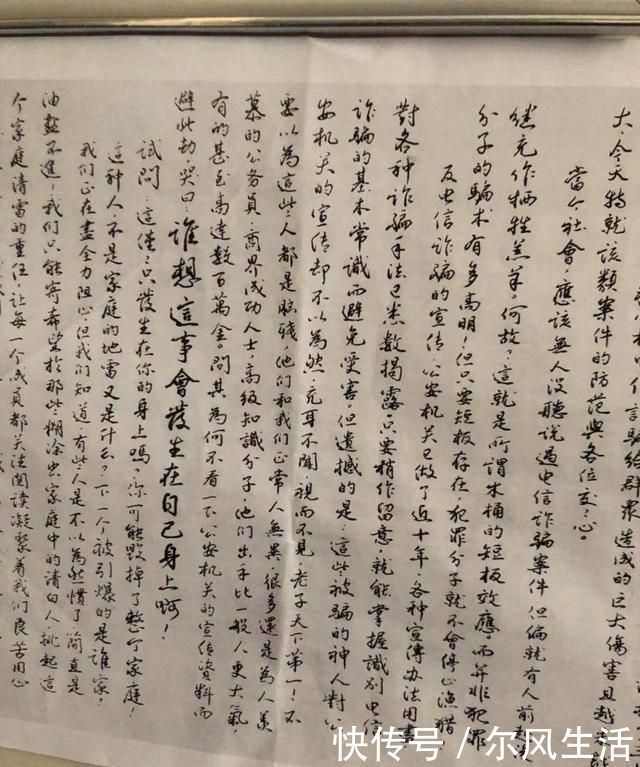 信詐騙給群眾造成的巨大傷害且越來
大，今天特就該類案件的防范與各位交心。
當今社會，應該無人没聽说過电信詐騙案件，但偏就有人前
继充作牺牲羔羊。何故？這就是所謂木桶的短板效應而并非犯罪
分子的騙术有多高明！但只要短板存在，犯罪分子就不會停止渔猎，
反电信诈骗的宣传，公安机关已做了近十年，各种宣傳办法用
對各种诈騙手法已悉數揭露，只要稍作留意，就能掌握識别电信
诈骗的基本常識而避免受害。但遺撼的是：這些被骗的神人對公
安机关的宣传却不以為然，充耳不聞，視而不見，老子天下第一！不
要以為這些人都是脑残，他們和我們正常人無異，很多還是為人羡
慕的公务員，商界成功人士，高级知識分子，他們出手比一般人更大氣，
有的甚至高達數百萬金。問其為何不看一下公安机关的宣传资料而
避此劫，哭曰：誰想這事會發生在自己身上啊！
試問：這僅只發生在你的身上嗎？你可能毁掉了整个家庭！
這种人，不是家庭的地雷又是什么？下一个被引爆的是誰家！
我们正在盡全力阻止，但我们知道有些人是不以為然慣了，簡直是
油盐不進！我们只能寄希望於那些糊涂虫家庭中的清白人，挑起這
个家庭清雷的重任，讓每一个成員都关注阅读凝聚着我們良苦用心
快传号／尔风生活